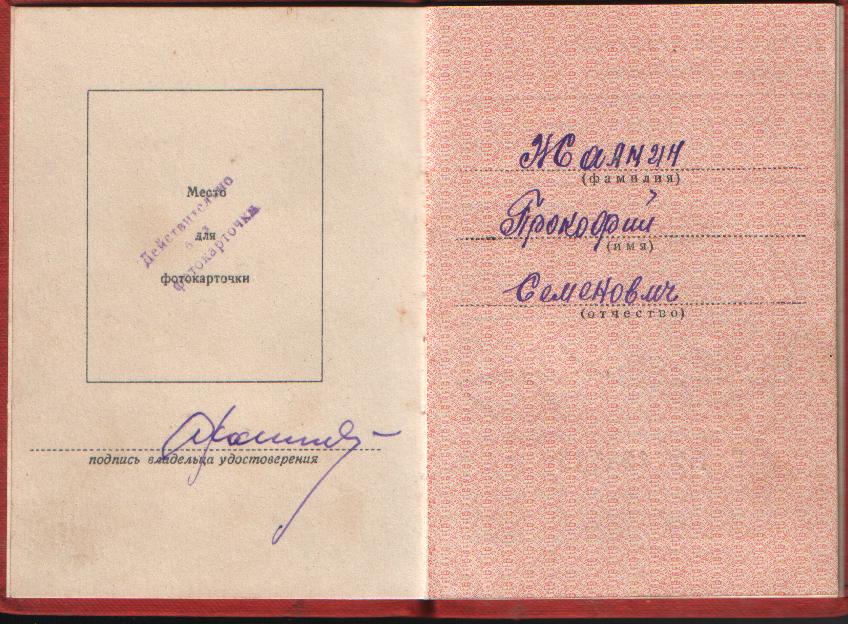 Место
для
фотокарточки
Действительно
без
фотокарточки
подпись владельца удостоверения
Жалнин
(фамилия)
Прокофий
(имя)
Семенович
(отчество)